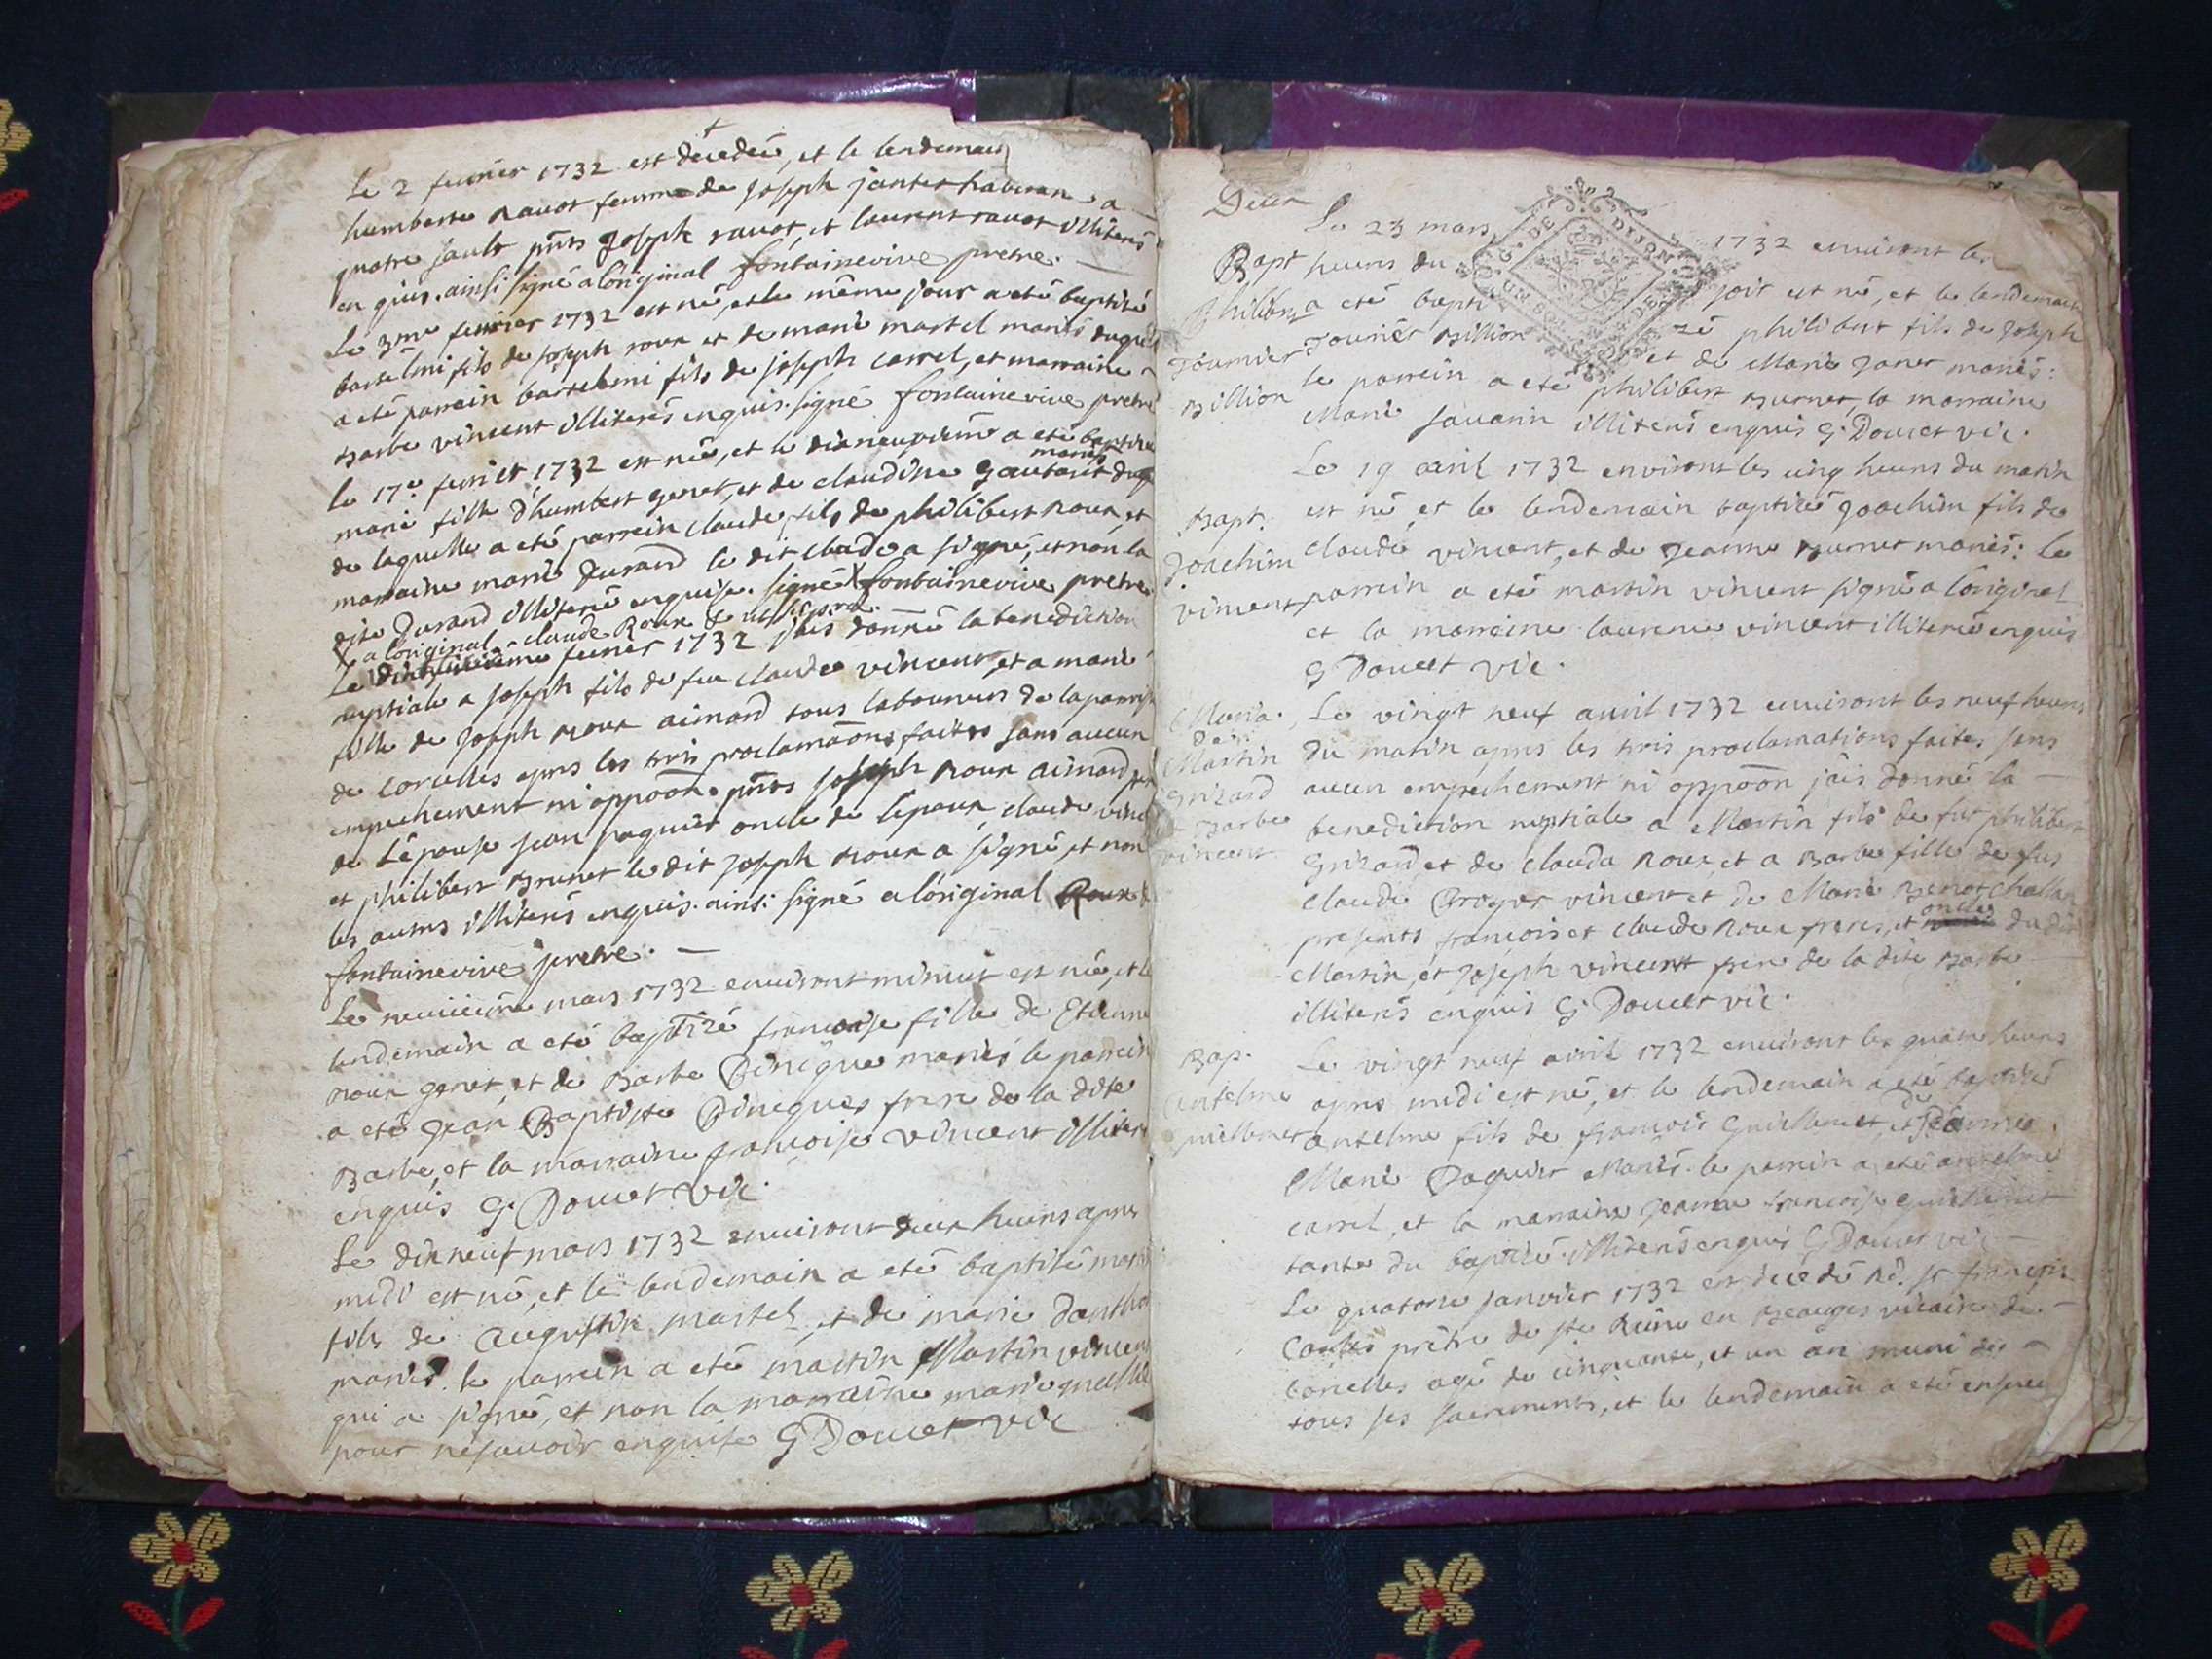 Le 2 feurier 1732 est decedeé, et le lendemain
humberte Rauot femme de Joseph
quatre sault pnts Joseph rauot, et laurent rauot illiterés
enquis. ainsi signé a l'original fontainevive pretre.
Le 3me feurier 1732 est né, et le même jour a eté baptisé
bartelmi fils de joseph roux et de marie martel mariés duquel
a eté parrain bartelemi fils de joseph carrel, et marraine
Barbe vincent illiterés enquis. signé fontainevive pretre
le 17e feurier 1732 est née, et le dixneuvieme a eté baptisée
mariés
marie fille d'humbert genet, et de claudine
de laquelle a eté parrein claude fils de philibert Roux, et
marraine marie Durand le dit claude a signé, et non la
dite Durand illiterée enquise. signé X fontainevive pretre
X a l'original claude Roux
Le feurier 1732 j'ais donné la benediction
nuptiale a joseph fils de feu claude vincent, et a marie
fille de joseph Roux aimard tous laboureurs de la parroisse
de corcelles apres les trois proclamaõns faites sans aucun
empechement ni oppoõn. pnts joseph Roux aimard
de l'épouse jean paquier oncle de l'epoux, claude
et philibert Brunet le dit joseph Roux a signé, et non
les autres illiterés enquis. ainsi signé a l'original Roux
fontainevive pretre.
Le neuvieme mars 1732 environt minuit est née, et le
lendemain a eté baptizé francoise fille de Etienne
roux genet, et de Barbe mariés le parrein
a eté Jean Baptiste frere de la dite
Barbe, et la marraine francoise vincent
enquis G Doucet vic.
Le dixneuf mars 1732 environt deux heures apres
midi est né, et le lendemain a eté baptisé
fils de augustin martel, et de marie
mariés. le parrein a eté martin Martin vincent
qui a signé, et non la marraine marie
pour ne sauoir enquise G Doucet vic
Decer
Le 23 mars 1732 environt les
Bapt heures du soir est né, et le lendemain
Philibert a eté bapti zé philibert fils de Joseph
Tournier Tournier Billion et de Marie Janet mariés:
Billion le parrein a eté philibert Burnet, la marraine
Marie sauarin illiterés enquis G. Doucet vic.
Le 19 avril 1732 environt les cinq heures du matin
Bapt. est né, et le lendemain baptizé Joachim fils de
Joachim claude vincent, et de Jeanne Burnet mariés: Le
vincent parrein a eté martin vincent signé a l'original
et la marreine laurence vincent illiterée enquis
G Doucet vic.
Maria. Le vingt neuf avril 1732 environt les neuf heures
Martin du matin apres les trois proclamations faites sans
Grizard aucun empechement ni oppoõn j'ais donné la
Barbe benediction nuptiale a Martin fils de fut philibert
vincent Grizard, et de clauda Roux, et a Barbe fille de fut
claude vincent et de Marie
oncles
presents francois et claude Roux freres, et du dit
Martin, et Joseph vincent frere de la dite Barbe
illiterés enquis G. Doucet vic.
Bap. Le vingt neuf avril 1732 environt les quatre heures
antelme apres midi est né, et le lendemain a eté baptisé
de
guillemet antelme fils de francois Guillemet, et Jeanne
Marie Paquier Mariés. le parrein a eté antelme
carrel, et la marraine Jeanne francoise guillemet
tante du baptisé. illiterés enquis G Doucet vic
Le quatorze janvier 1732 est decedé Rd. sr francois
prêtre de ste Reine en Beauges vicaire de
corcelles agé de cinquante, et un an muni de
tous ses sacrements, et le lendemain a eté enseveli